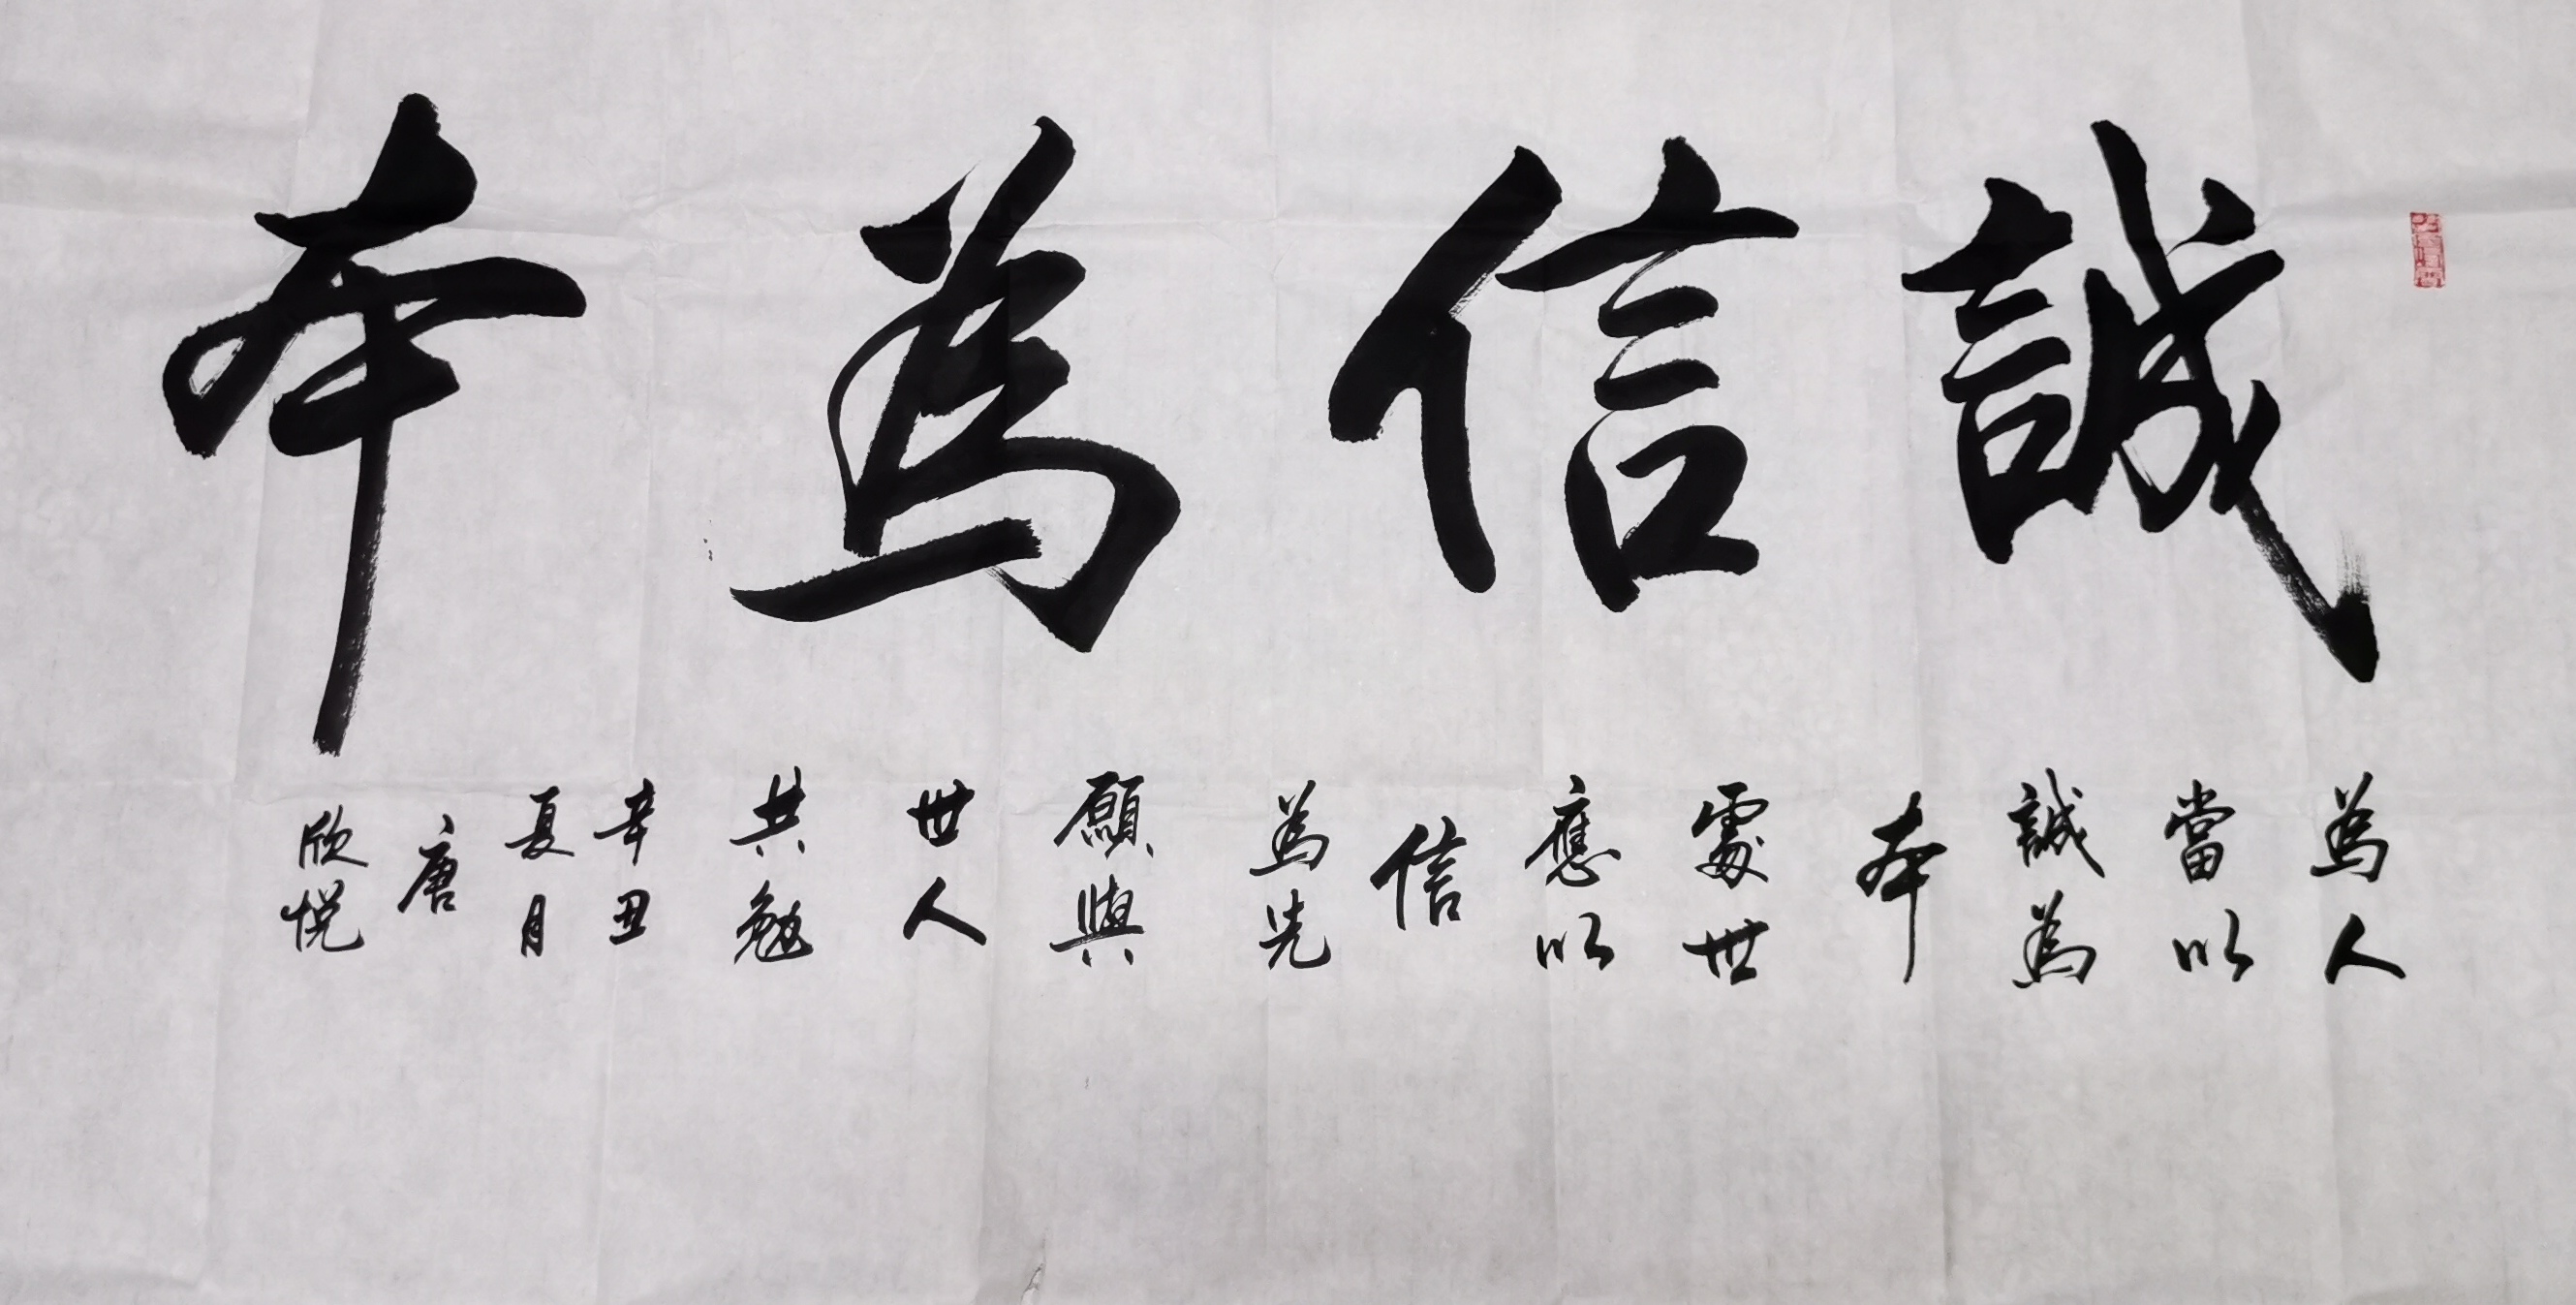 誠信為本
為人
當以
誠為
本
處世
應以
信
為先
願與
世人
共勉
辛丑
夏月
唐
欣悦